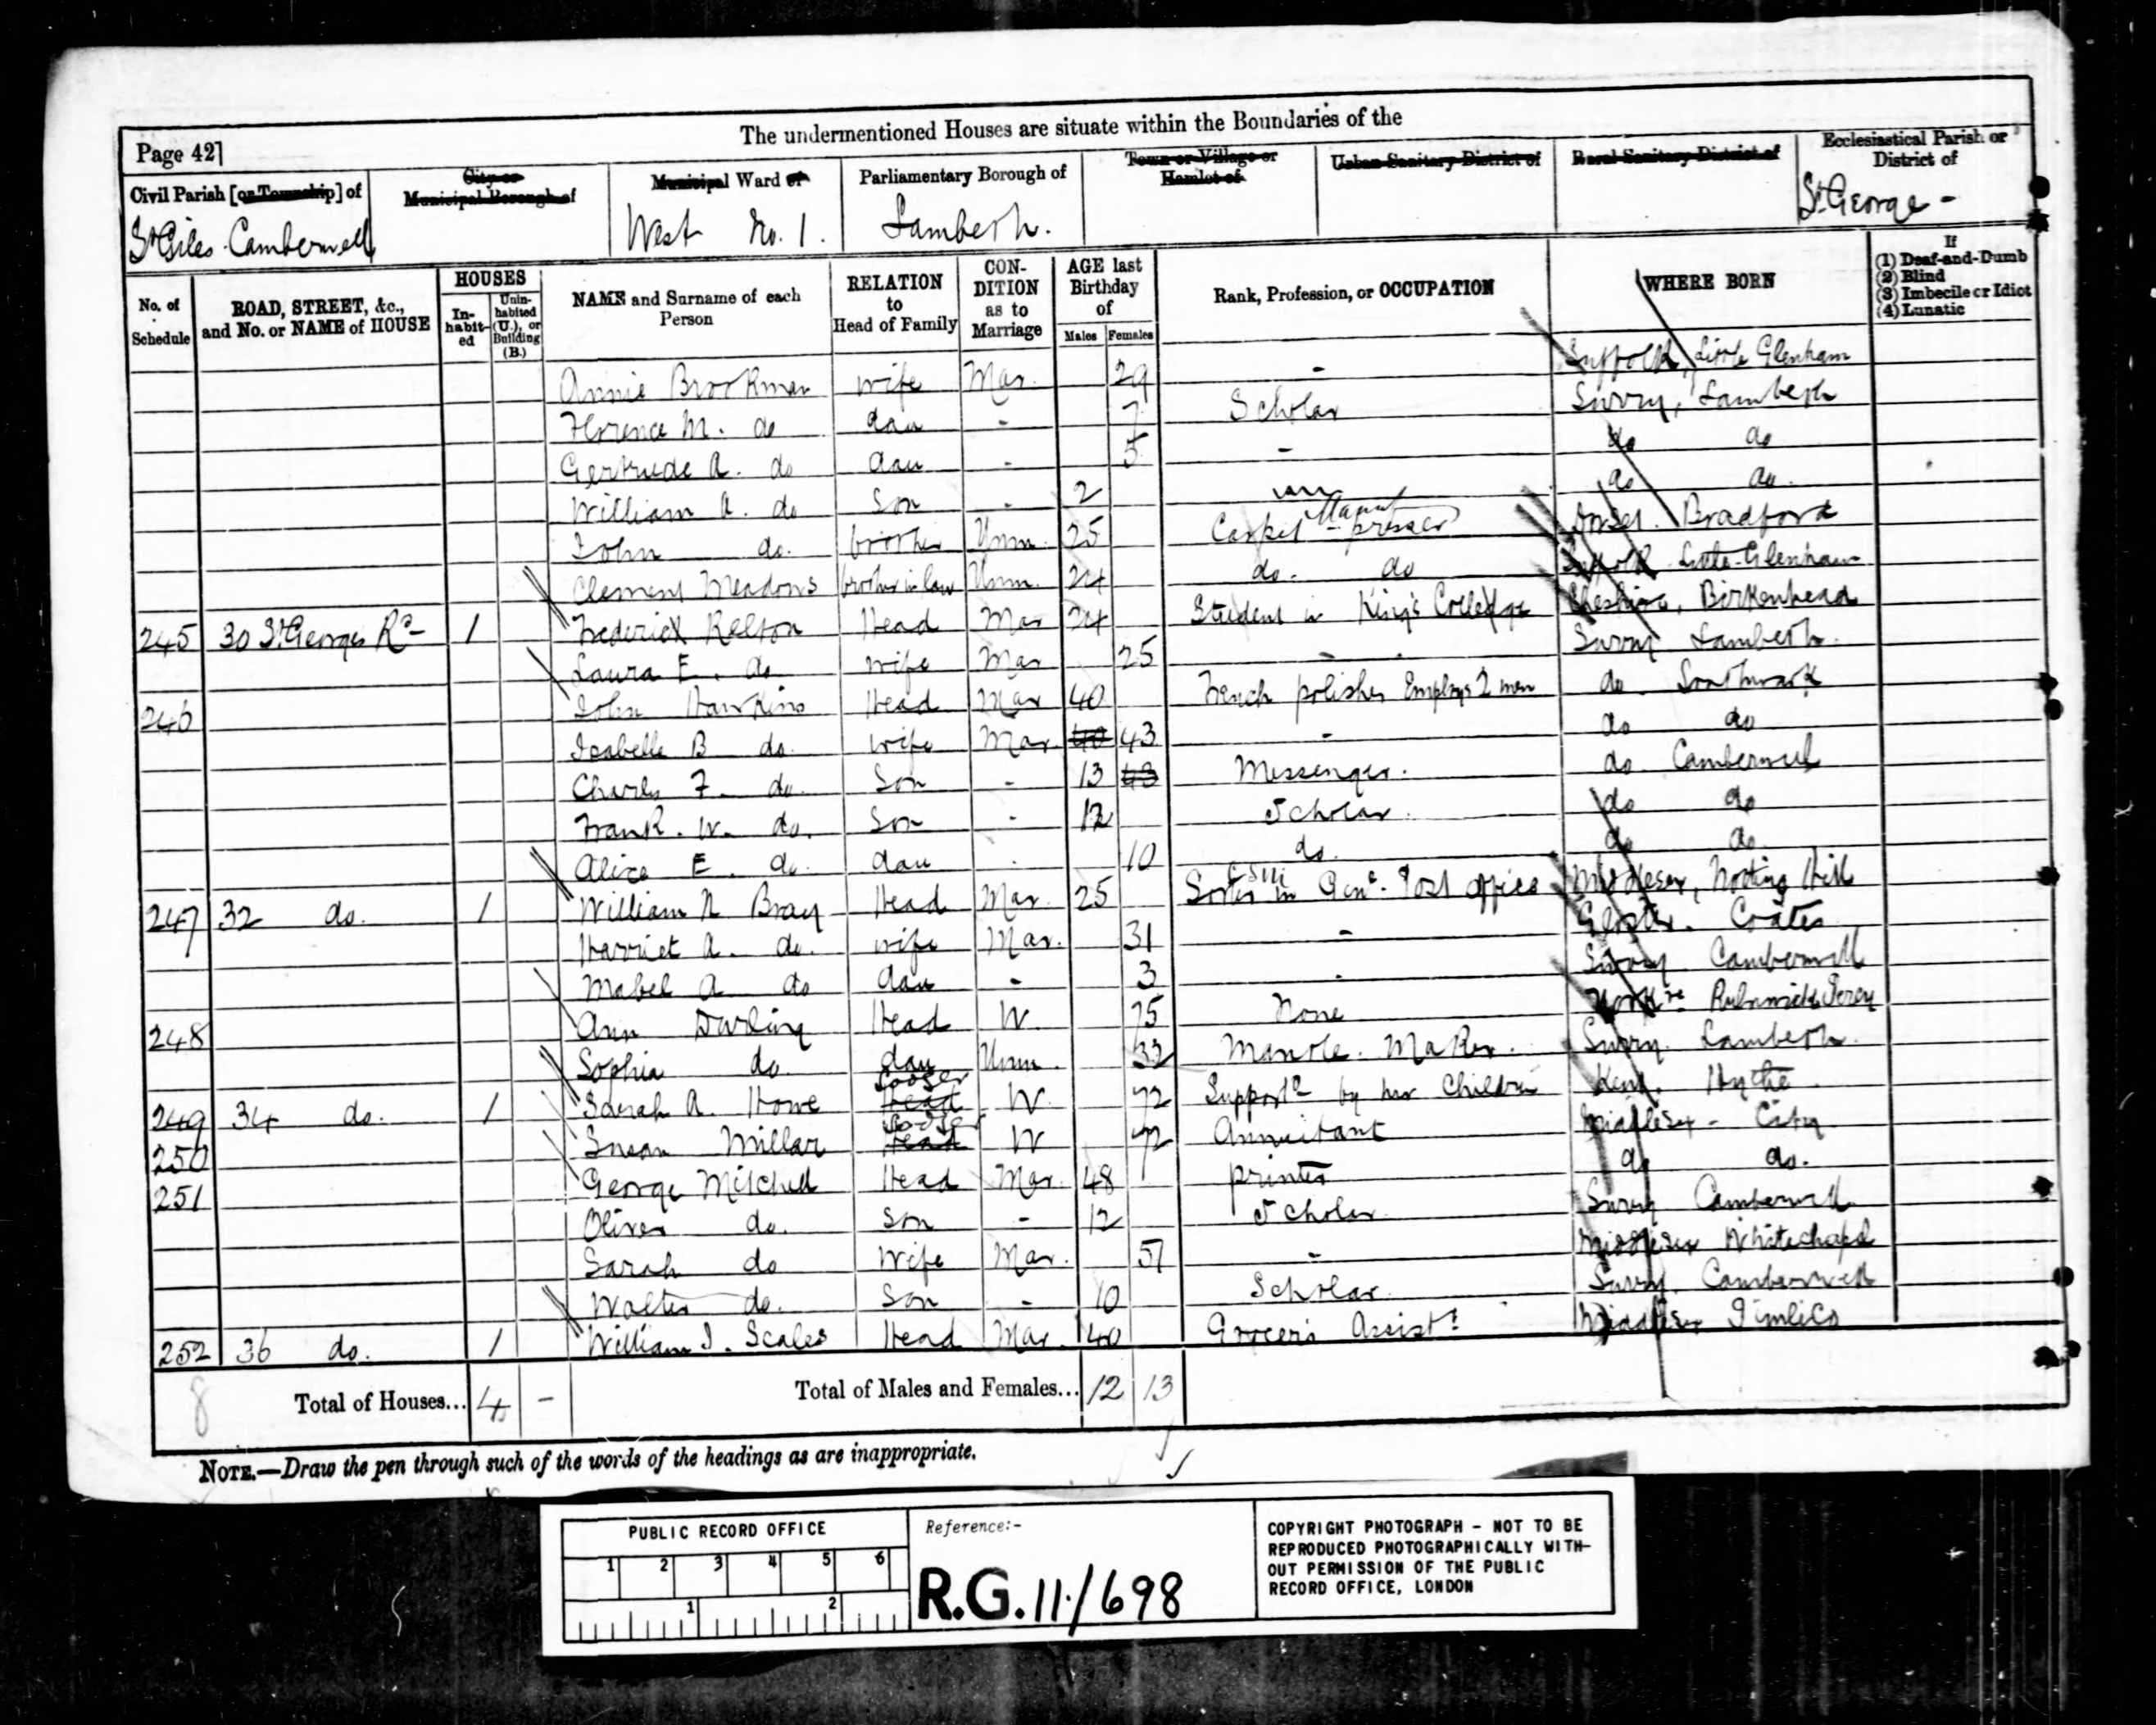 The undermentioned Houses are situate within the Boundaries of the
Page 42]
Civil Parish [or Township] of
St Giles Camberwell
City or Municipal Borough of
Municipal Ward of
West No. 1.
Parliamentary Borough of
Lambeth.
Town or Village or Hamlet of
Urban Sanitary District of
Rural Sanitary District of
Ecclesiastical Parish or District of
St. George -
No. of Schedule
ROAD, STREET, &c., and No. or NAME of HOUSE
HOUSES
In-habit-ed
Unin-habited (U.), or Building (B.)
NAME and Surname of each Person
RELATION to Head of Family
CON-DITION as to Marriage
AGE last Birthday of
Males Females
Rank, Profession, or OCCUPATION
WHERE BORN
If
(1) Deaf-and-Dumb
(2) Blind
(3) Imbecile or Idiot
(4) Lunatic
Annie Brookman wife Mar. 29 - Suffolk, Little Glenham
Florence M. do dau - 7 Scholar Surry, Lambeth
Gertrude A. do dau - 5 - do do
William A. do Son - 2 do do.
John do. brother Unm. 25 Carpet presser Dorset. Bradford
Clement Meadows brother in law Unm. 24 do. do Suffolk Little Glenham
245 30 St. Georges Rd 1 Frederick Relton Head Mar 24 Student in King's Colledge Cheshire, Birkenhead
Laura E. do wife Mar 25 - Surry Lambeth.
246 John Hawkins Head Mar 40 French polisher Employs 2 men do Southwark
Isabella B do. wife Mar. 40 43 - do do
Charles F. do Son - 13 43 Messenger. do Camberwell
Frank. W. do. Son - 12 Scholar. do do
Alice E. do. dau 10 do. do do.
247 32 do. 1 William N Bray Head Mar. 25 Sorter in Genl. Post Office Middlesex, Notting Hill
Harriet A. do. wife Mar. 31 - Gloster. Coates
Mabel A do dau - 3 Surry Camberwell
248 Ann Darling Head W 75 None
Sophia do. dau Unm. 32 Mantle. Maker. Surry. Lambeth.
249 34 do. 1 Sarah A. Howe Head Lodger W. 72 Supportd by her Children Kent. Hythe
250 Susan Millar Head Lodger W 72 Annuitant Middlesex - City
251 George Mitchell Head Mar. 48 printer do do.
Oliver do. Son - 12 Scholar. Surry Camberwell
Sarah do Wife Mar. 51 - Middlesex Whitechapel
Walter do. Son - 10 Scholar. Surry. Camberwell
252 36 do. 1 William J. Scales Head Mar. 40 Grocer's Assist. Middlesex Pimlico
8 Total of Houses... 4 - Total of Males and Females... 12 13
NOTE.—Draw the pen through such of the words of the headings as are inappropriate.
PUBLIC RECORD OFFICE
1 2 3 4 5 6
1 2
Reference:-
R.G. 11/698
COPYRIGHT PHOTOGRAPH - NOT TO BE
REPRODUCED PHOTOGRAPHICALLY WITH-
OUT PERMISSION OF THE PUBLIC
RECORD OFFICE, LONDON